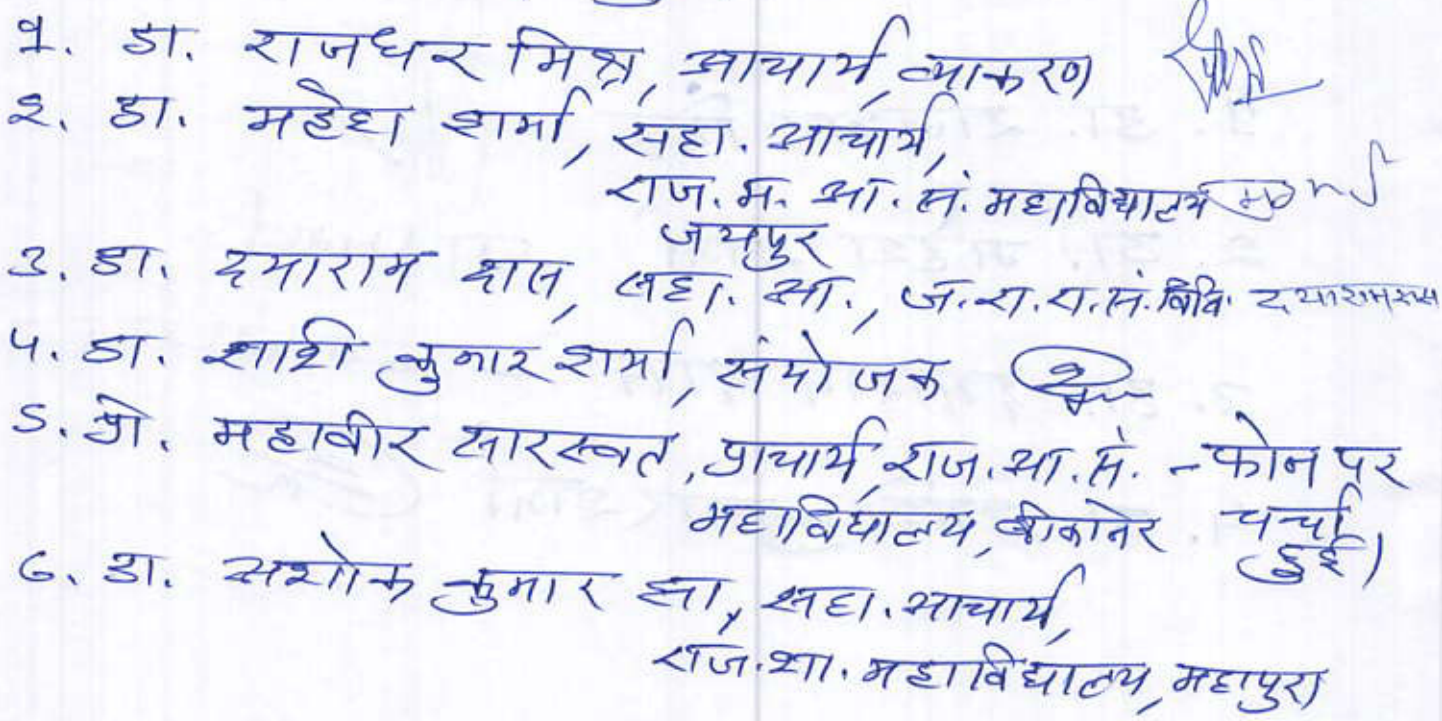 १. डा. राजधर मिश्र, आचार्य, व्याकरण
२. डा. महेश शर्मा, सहा. आचार्य,
राज. म. आ. सं. महाविद्यालय
जयपुर
३. डा. दयाराम दास, सहा. आ., ज.रा.रा.सं.विवि. दयारामदास
४. डा. शशि कुमार शर्मा, संयोजक
५. प्रो. महावीर सारस्वत, प्राचार्य, राज.आ.सं. - फोन पर
महाविद्यालय, बीकानेर. चर्चा
हुई।
६. डा. अशोक कुमार झा, सहा. आचार्य,
राज.शा. महाविद्यालय, महापुरा